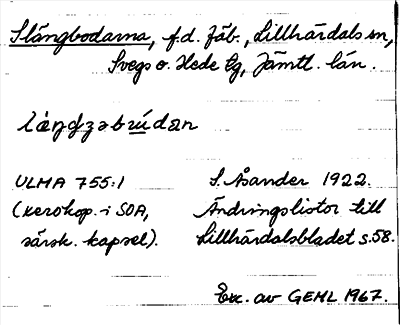 Slängbodarna, f.d. fäb., Lillhärdals sn,
Svegs o. Hede tg, Jämtl. län.
låŋgzəbúdan
ULMA 755:1
(xerokop. i SOA,
särsk. kapsel).
S. Åsander 1922.
Ändringslistor till
Lillhärdalsbladet s.58.
Exc. av GEHL 1967.